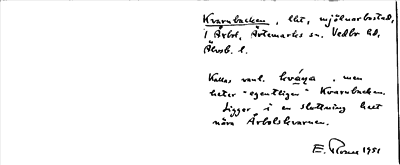 Kvarnbacken, lht, mjölnarbostad,
i Årbol, Ärtemarks sn. Vedbo hd,
Älvsb. l.
Kallas vanl. kvána, men
heter "egentligen" Kvarnbacken.
Ligger i en sluttning helt
nära Årbolskvarnen.
E. 1951